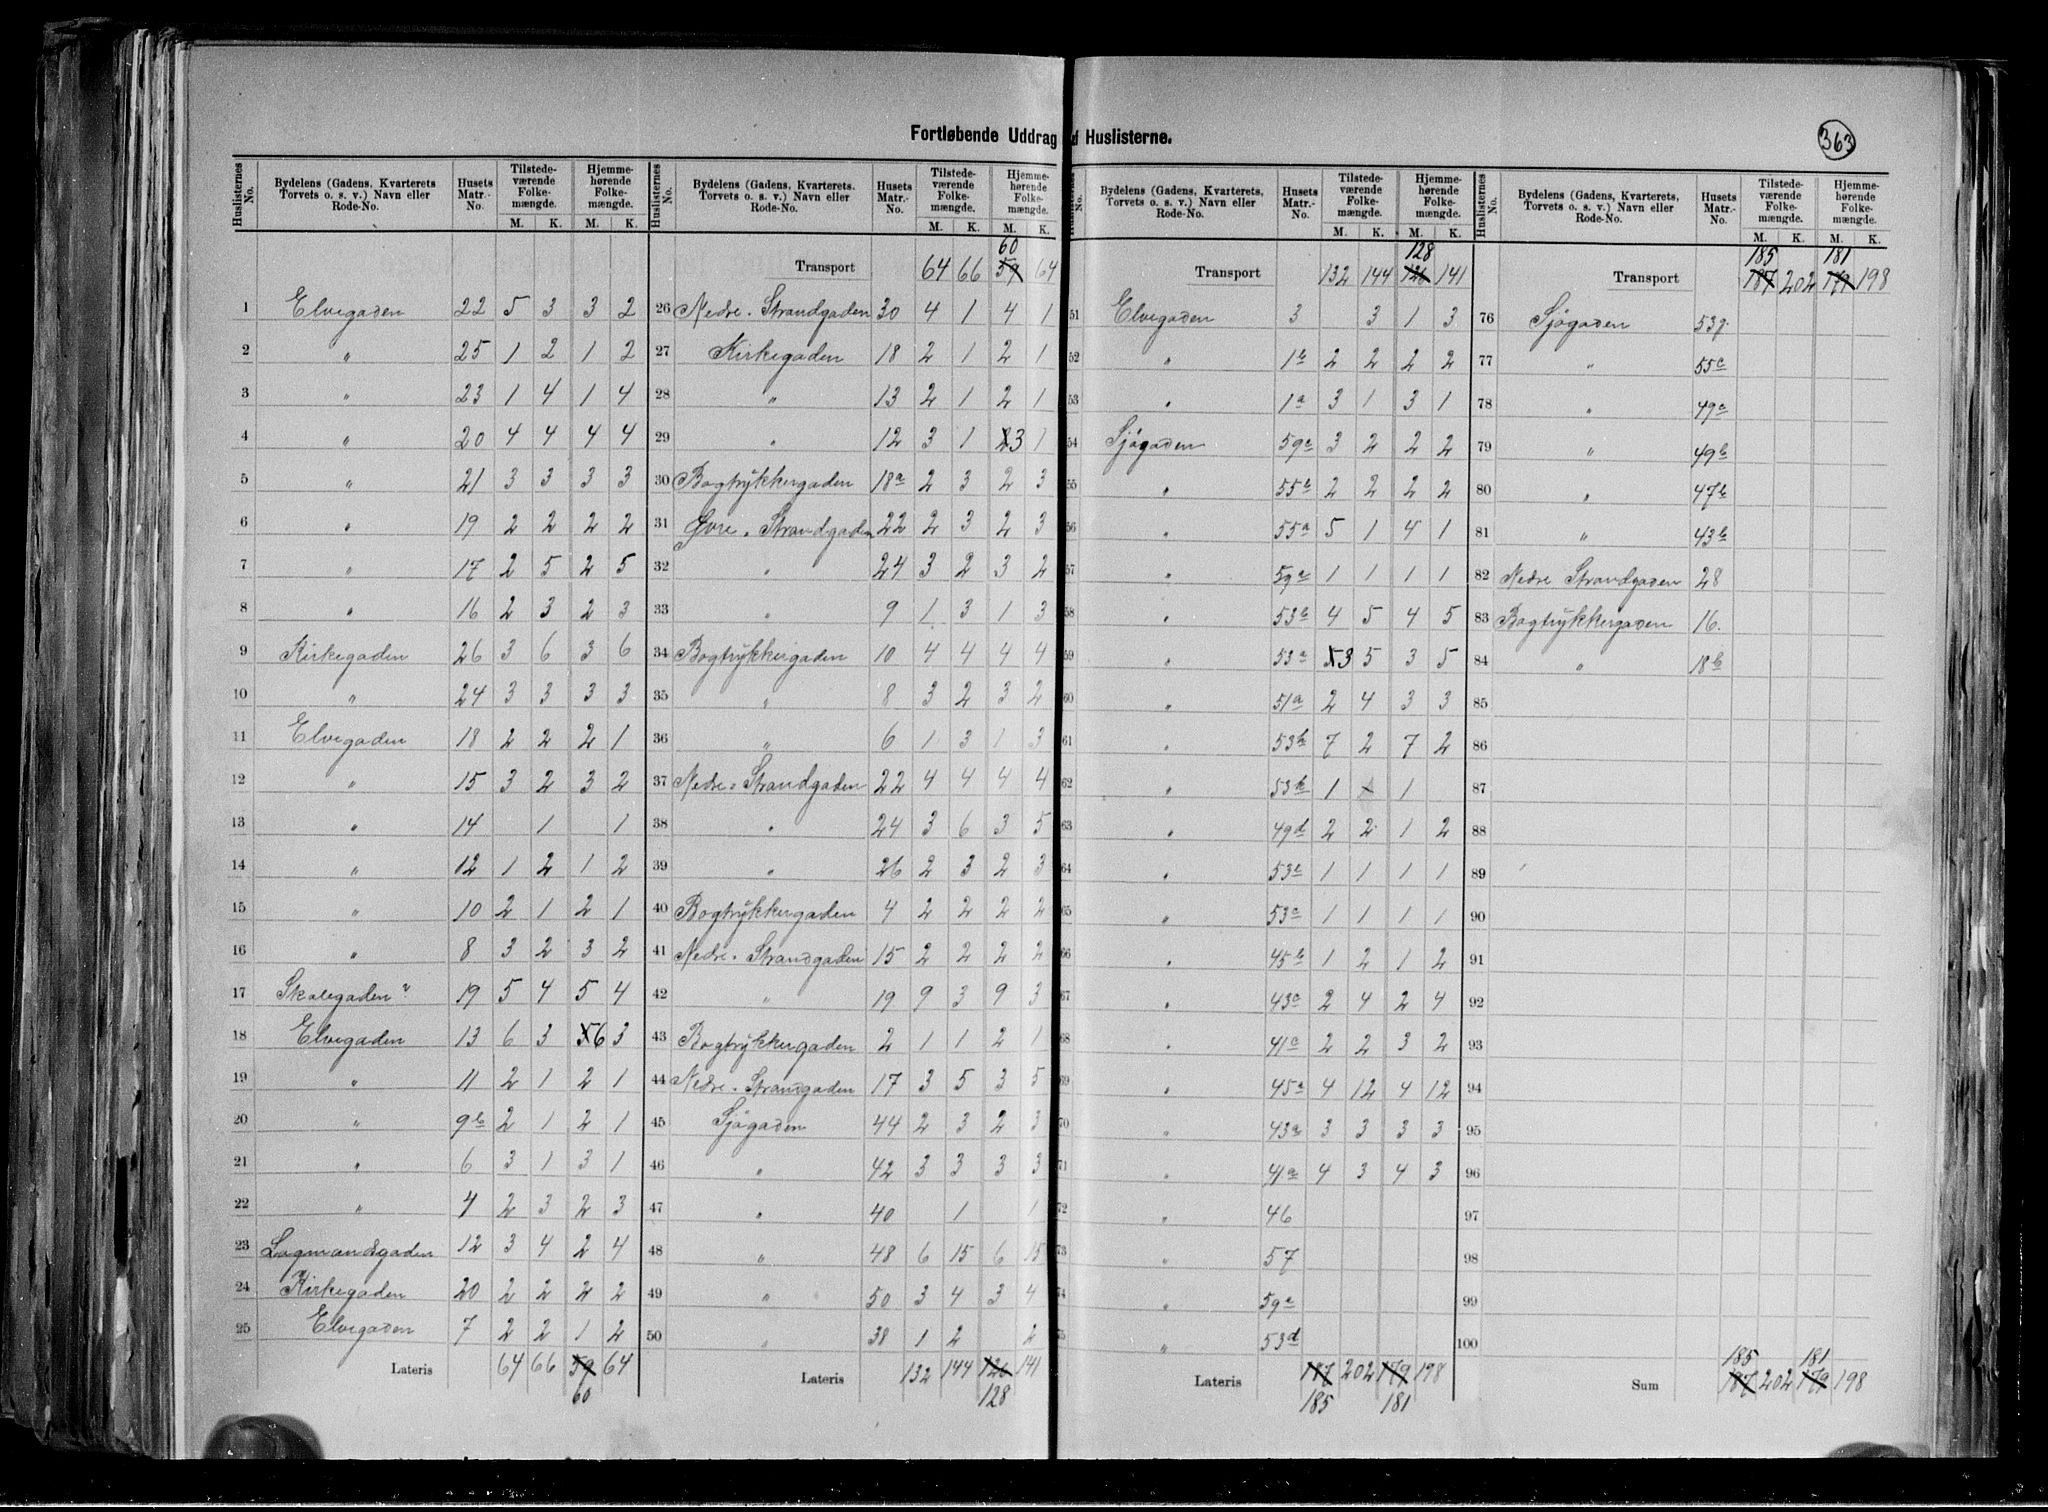 363
Fortløbende Uddrag af Huslisterne.
Huslisternes No. | Bydelens (Gadens, Kvarterets Torvets o. s. v.) Navn eller Rode-No. | Husets Matr.-No. | Tilstedeværende Folkemængde. M. K. | Hjemmehørende Folkemængde. M. K.
1 Elvegaden 22 5 3 3 2
2 " 25 1 2 1 2
3 " 23 1 4 1 4
4 " 20 4 4 4 4
5 " 21 3 3 3 3
6 " 19 2 2 2 2
7 " 17 2 5 2 5
8 " 16 2 3 2 3
9 Kirkegaden 26 3 6 3 6
10 " 24 3 3 3 3
11 Elvegaden 18 2 2 2 1
12 " 15 3 2 3 2
13 " 14 1 1
14 " 12 1 2 1 2
15 " 10 2 1 2 1
16 " 8 3 2 3 2
17 Skolegaden " 19 5 4 5 4
18 Elvegaden 13 6 3 6 3
19 " 11 2 1 2 1
20 " 9b 2 1 2 1
21 " 6 3 1 3 1
22 " 4 2 3 2 3
23 Lagmandsgaden 12 3 4 2 4
24 Kirkegaden 20 2 2 2 2
25 Elvegaden 7 2 2 1 2
Lateris 64 66 59 64
60
Huslisternes No. | Bydelens (Gadens, Kvarterets, Torvets o. s. v.) Navn eller Rode-No. | Husets Matr.-No. | Tilstedeværende Folkemængde. M. K. | Hjemmehørende Folkemængde. M. K.
60
Transport 64 66 59 64
26 Nedre-Strandgaden 30 4 1 4 1
27 Kirkegaden 18 2 1 2 1
28 " 13 2 1 2 1
29 " 12 3 1 2 3 1
30 Bogtrykkergaden 18a 2 3 2 3
31 Øvre-Strandgaden 22 2 3 2 3
32 " 24 3 2 3 2
33 " 9 1 3 1 3
34 Bogtrykkergaden 10 4 4 4 4
35 " 8 3 2 3 2
36 " 6 1 3 1 3
37 Nedre-Strandgaden 22 4 4 4 4
38 " 24 3 6 3 5
39 " 26 2 3 2 3
40 Bogtrykkergaden 4 2 2 2 2
41 Nedre-Strandgaden 15 2 2 2 2
42 " 19 9 3 9 3
43 Bogtrykkergaden 2 1 1 2 1
44 Nedre-Strandgaden 17 3 5 3 5
45 Sjøgaden 44 2 3 2 3
46 " 42 3 3 3 3
47 " 40 1 1
48 " 48 6 15 6 15
49 " 50 3 4 3 4
50 " 38 1 2 2
Lateris 132 144 126 141
128
Huslisternes No. | Bydelens (Gadens, Kvarterets, Torvets o. s. v.) Navn eller Rode-No. | Husets Matr.-No. | Tilstedeværende Folkemængde. M. K. | Hjemmehørende Folkemængde. M. K.
128
Transport 132 144 126 141
51 Elvegaden 3 3 1 3
52 " 1b 2 2 2 2
53 " 1a 3 1 3 1
54 Sjøgaden 59c 3 2 2 2
55 " 55b 2 2 2 2
56 " 55a 5 1 4 1
57 " 59a 1 1 1 1
58 " 4 5 4 5
59 " 53a 3 5 3 5
60 " 51a 2 4 3 3
61 " 53b 7 2 7 2
62 " 53b 1 1
63 " 49d 2 2 1 2
64 " 1 1 1 1
65 " 1 1 1 1
66 " 45b 1 2 1 2
67 " 2 4 2 4
68 " 2 2 3 2
69 " 45a 4 12 4 12
70 " 43a 3 3 3 3
71 " 41a 4 3 4 3
72 " 46
73 " 57
74 "
75 " 53d
Lateris 187 202 179 198
185 181
Huslisternes No. | Bydelens (Gadens, Kvarterets, Torvets o. s. v.) Navn eller Rode-No. | Husets Matr.-No. | Tilstedeværende Folkemængde. M. K. | Hjemmehørende Folkemængde. M. K.
185 181
Transport 187 202 179 198
76 Sjøgaden
77 " 55c
78 " 49a
79 " 49b
80 " 47b
81 " 43b
82 Nedre Strandgaden 28
83 Bogtrykkergaden 16.
84 " 18b
85
86
87
88
89
90
91
92
93
94
95
96
97
98
99
100
185 181
Sum 187 202 179 198